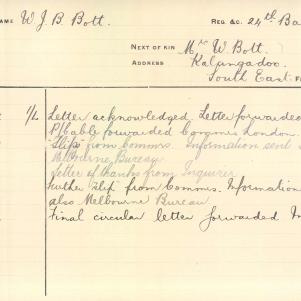 NAME W. J. B. Bott. REG. &C. 24th Ba
NEXT OF KIN Mr W Bott.
ADDRESS Kalangadoo.
South East.
1/L Letter acknowledged Letter forwarded
P/Cable forwarded Commrs London.
Slip from Commrs. Information sent
Melbourne Bureau
Letter of thanks from Inquirer
Further slip from Commrs. Information
also Melbourne Bureau
Final circular letter forwarded In